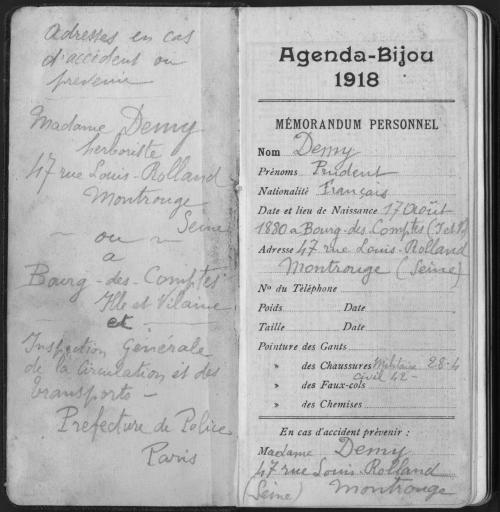 Adresses en cas
d'accident ou
prevenir
Madame Demy
herboriste
47 rue Louis-Rolland
Montrouge
Seine
- ou -
a
Bourg-des-Comptes
Ille et Vilaine
et
Inspection Générale
de la Circulation et des
Transports -
Prefecture de Police
Paris
Agenda-Bijou
1918
MÉMORANDUM PERSONNEL
Nom Demy
Prénoms Prudent
Nationalité Français
Date et lieu de Naissance 17 Août
1880 a Bourg-des-Comptes (I et V)
Adresse 47 rue Louis-Rolland
Montrouge (Seine)
No du Téléphone
Poids Date
Taille Date
Pointure des Gants
» des Chaussures Militaire 28-4
Civil 42-
» des Faux-cols
» des Chemises
En cas d'accident prévenir :
Madame Demy
47 rue Louis-Rolland
(Seine) Montrouge